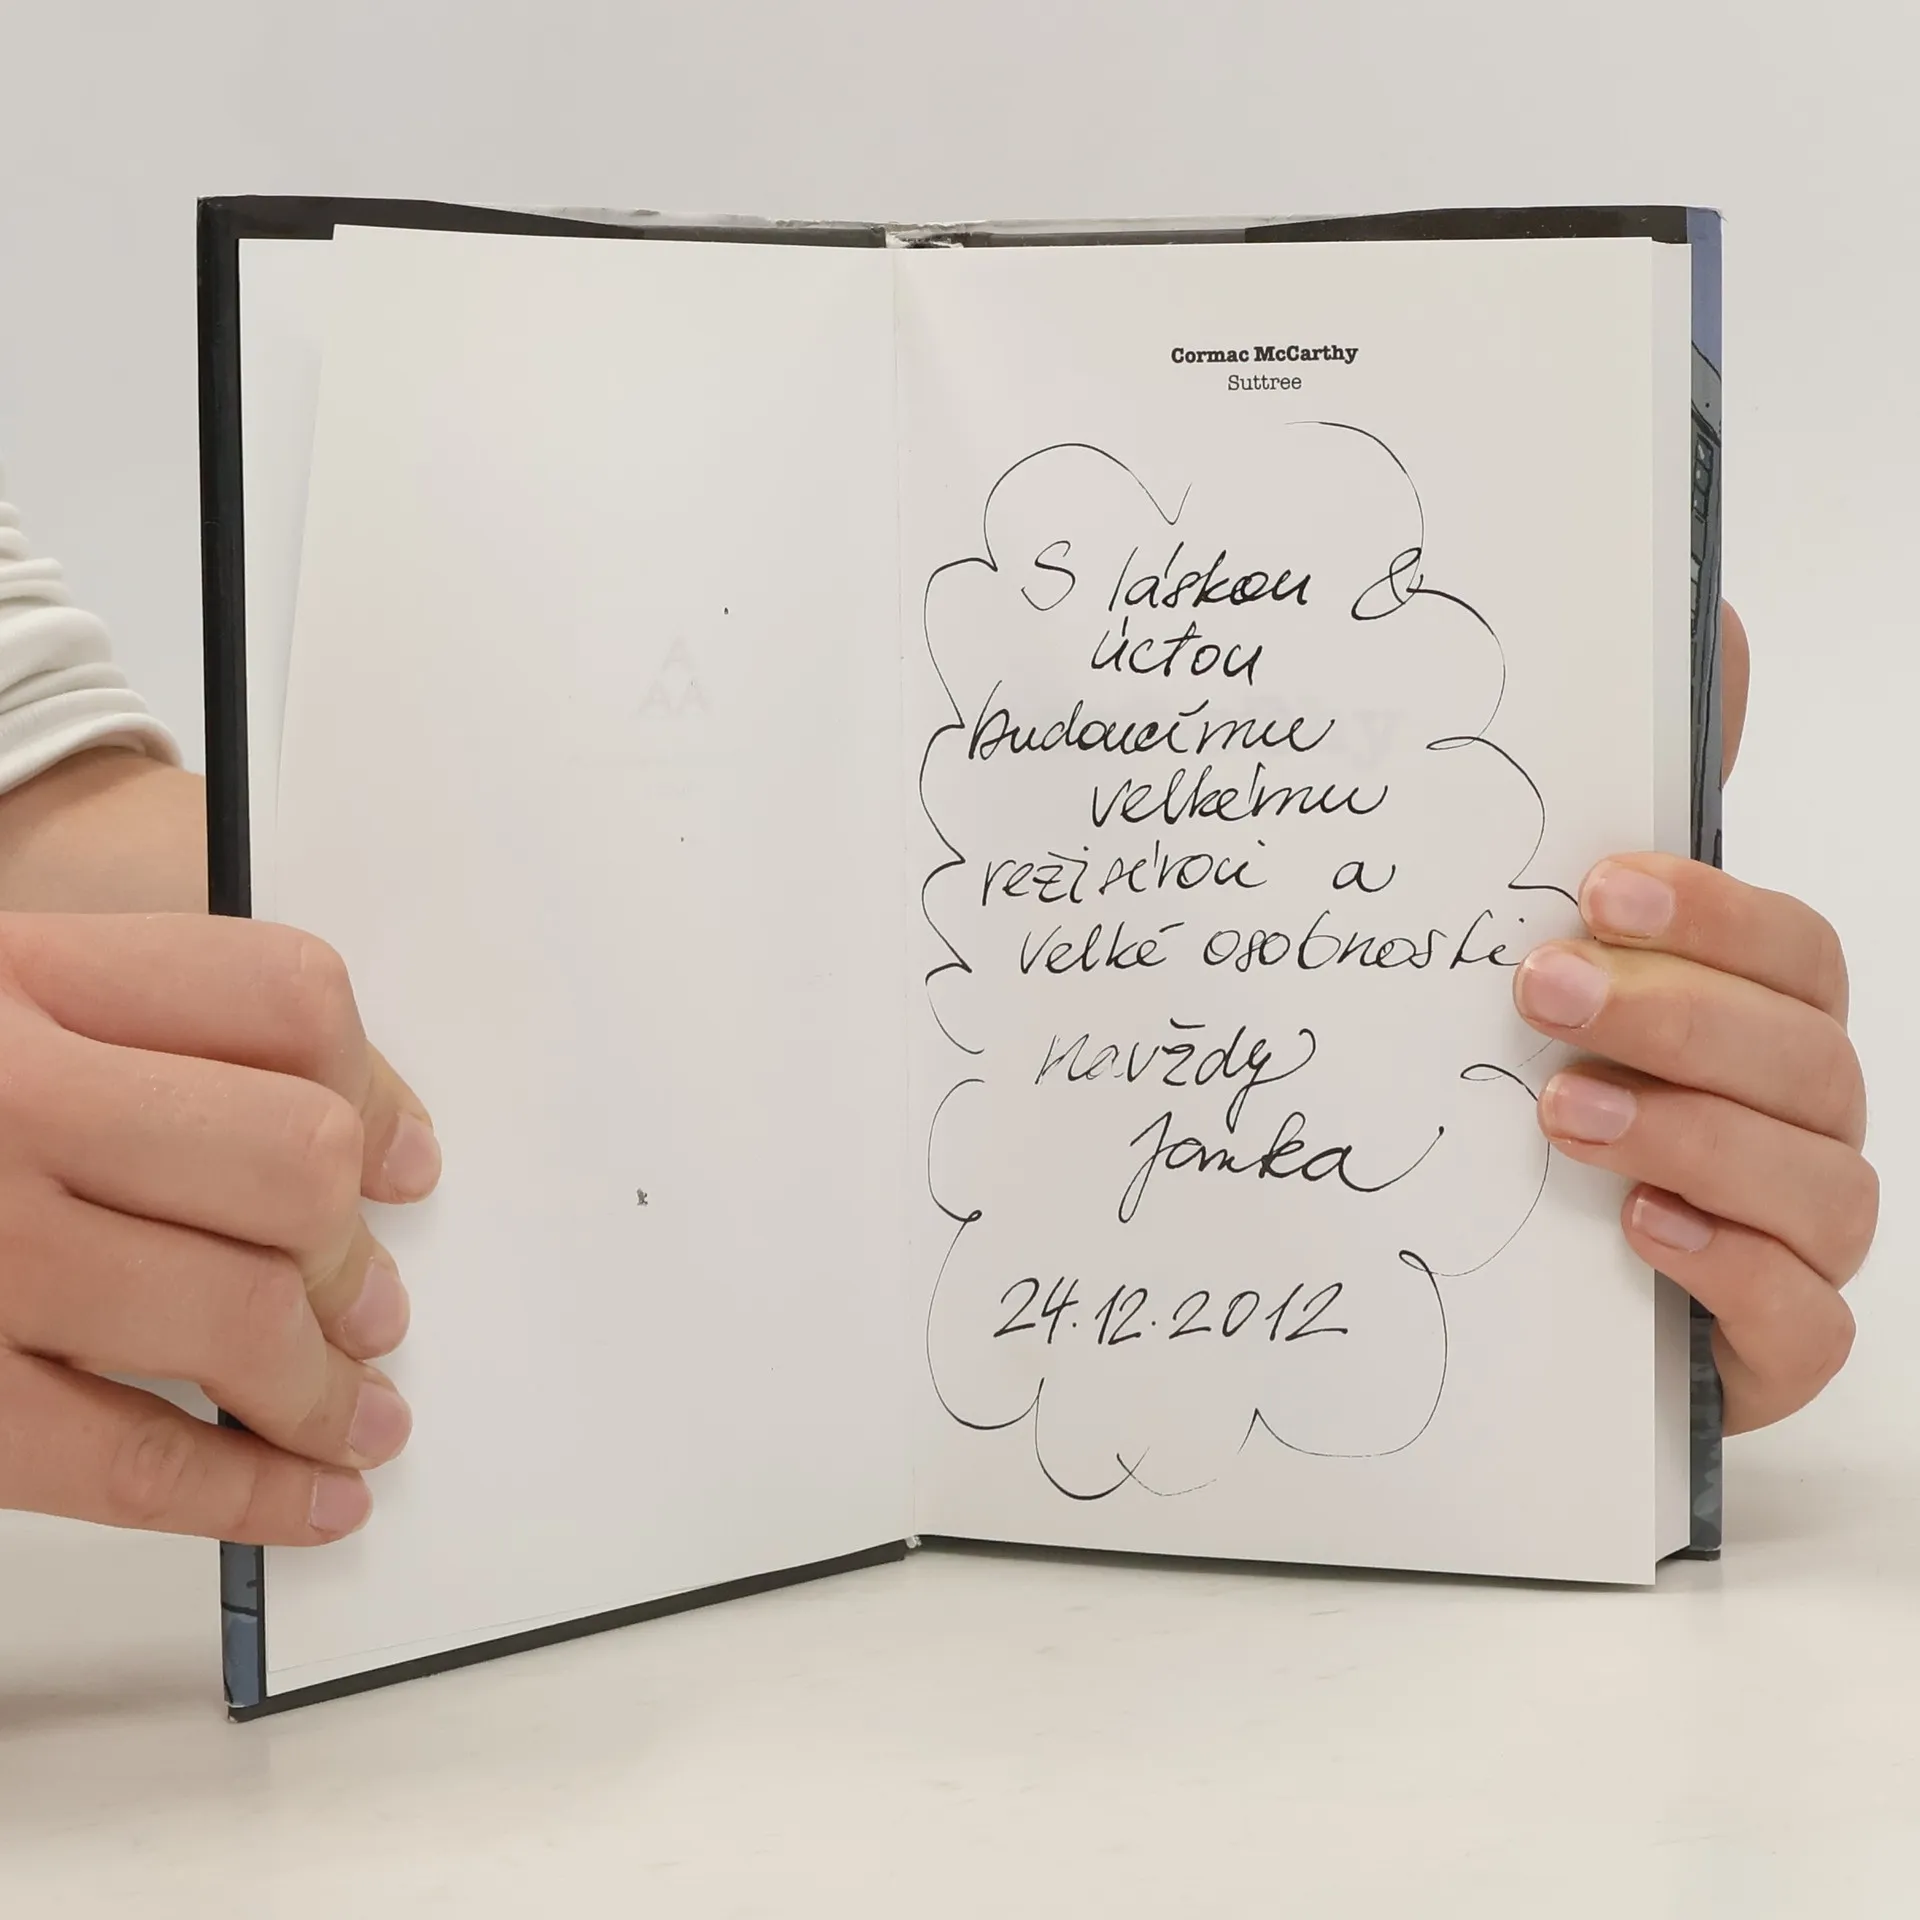 Cormac McCarthy
Suttree
S láskou &
úctou
budoucímu
velkému
režisérovi a
velké osobnosti
navždy
Janka
24.12.2012